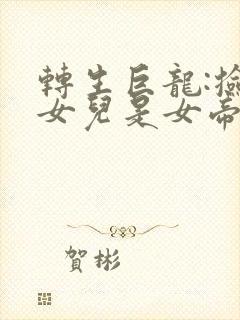 轉生巨龍:撿
女兒是女帝
賀彬